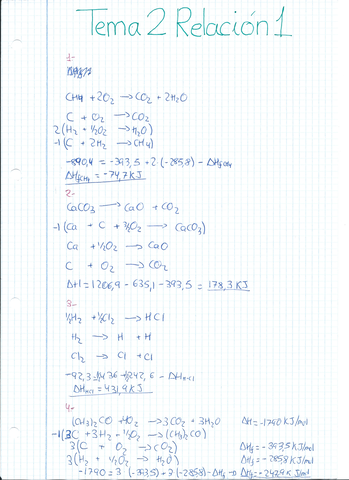 Tema 2 Relación 1
1-
CH4 + 2O2 → CO2 + 2H2O
C + O2 → CO2
2(H2 + ½O2 → H2O)
-1(C + 2H2 → CH4)
-890,4 = -393,5 + 2·(-285,8) - ΔHfCH4
ΔHfCH4 = -74,7 KJ
2-
CaCO3 → CaO + CO2
-1(Ca + C + 3/2O2 → CaCO3)
Ca + ½O2 → CaO
C + O2 → CO2
ΔH = 1206,9 - 635,1 - 393,5 = 178,3 KJ
3-
½H2 + ½Cl2 → HCl
H2 → H + H
Cl2 → Cl + Cl
-92,3 = ½436 + ½242,6 - ΔHHCl
ΔHHCl = 431,9 KJ
4-
(CH3)2CO + 4O2 → 3CO2 + 3H2O ΔH = -1790 KJ/mol
-1(3C + 3H2 + ½O2 → (CH3)2CO)
3(C + O2 → CO2) ΔHf = -393,5 KJ/mol
3(H2 + ½O2 → H2O) ΔHf = -285,8 KJ/mol
-1790 = 3·(-393,5) + 3·(-285,8) - ΔHf → ΔHf = -247,9 KJ/mol